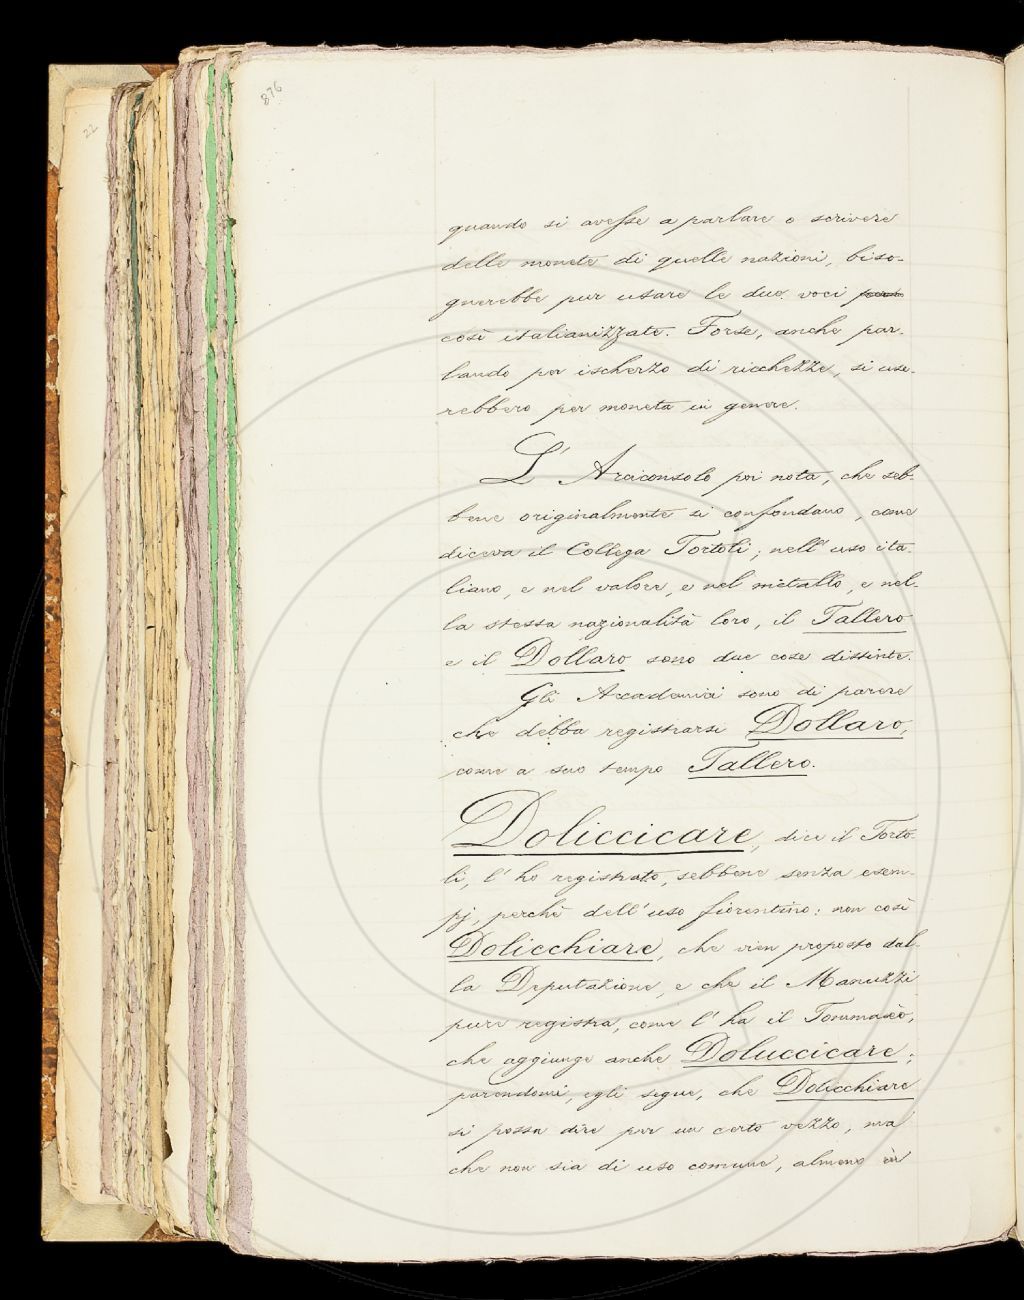 876
22
quando si avesse a parlare o scrivere
delle monete di quelle nazioni, biso-
gnerebbe pur usare le due voci
così italianizzate. Forse, anche par-
lando per ischerzo di ricchezze, si use-
rebbero per moneta in genere.
L' Arciconsolo poi nota, che seb-
bene originalmente si confondano, come
diceva il Collega Tortoli; nell' uso ita-
liano, e nel valore, e nel metallo, e nel-
la stessa nazionalità loro, il Tallero
e il Dollaro sono due cose distinte.
Gli Accademici sono di parere
che debba registrarsi Dollaro,
come a suo tempo Tallero.
Doliccicare, dice il Torto-
li, l' ho registrato, sebbene senza esem-
pj, perchè dell' uso fiorentino: non così
Dolicchiare, che vien proposto dal-
la Deputazione, e che il Manuzzi
pure registra, come l' ha il Tommasèo,
che aggiunge anche Doluccicare;
parendomi, egli segue, che Dolicchiare
si possa dire per un certo vezzo, ma
che non sia di uso comune, almeno in